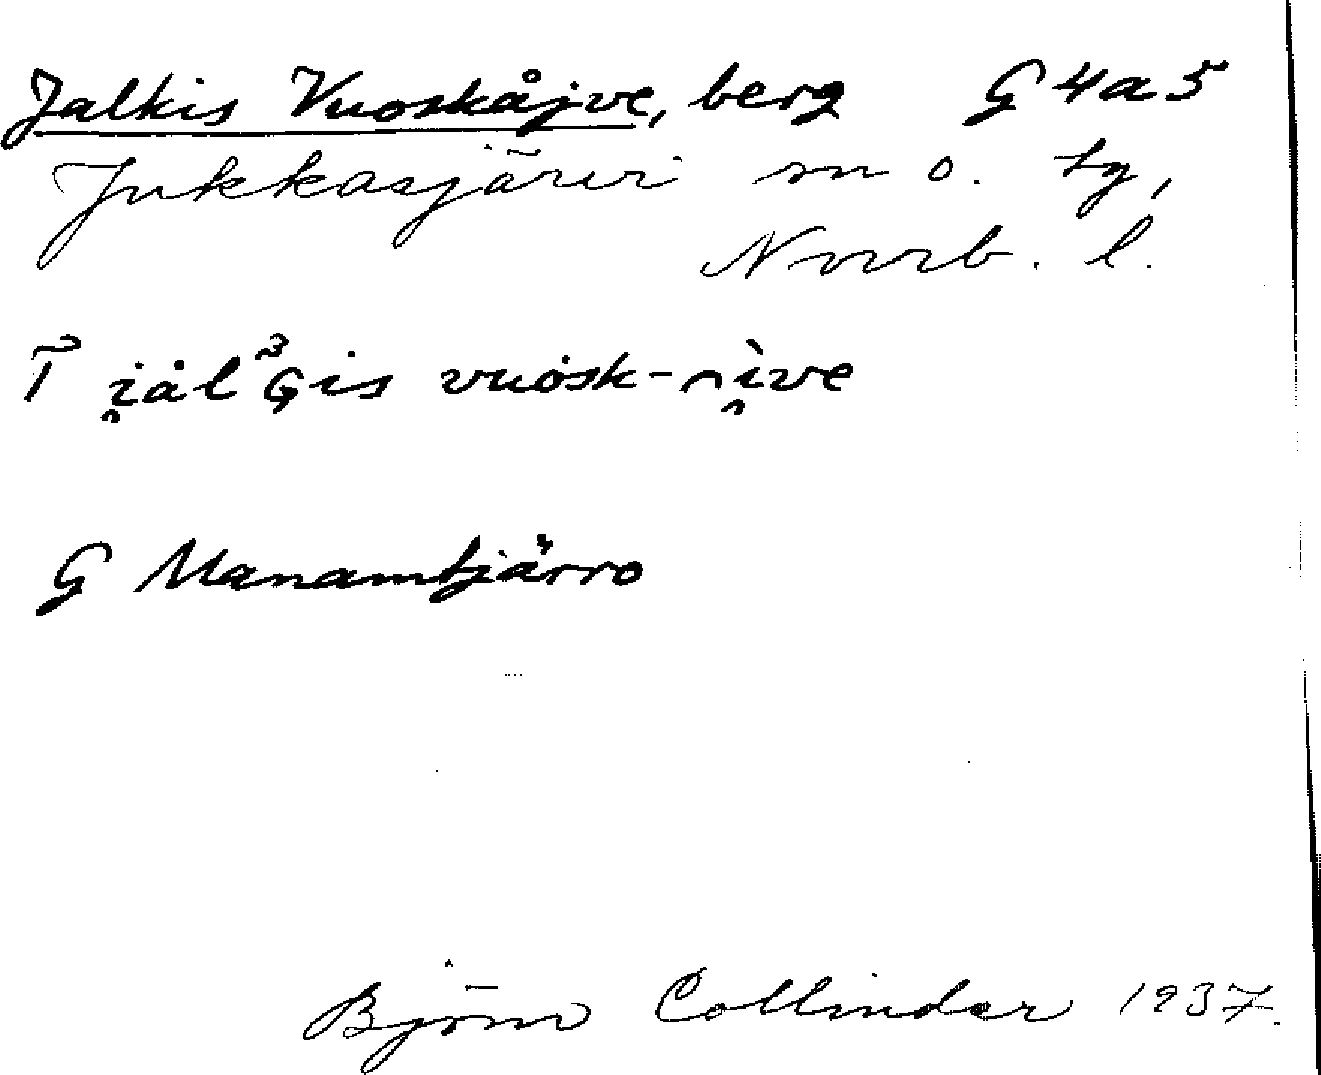 Jalkis Vuoskåjve, berg G 4a5
Jukkasjärvi sn o. tg,
Norrb. l.
T i̯ål̃ᴳis vuȯsk-ài̯ve
G Manamtjärro
Björn Collinder 1937.